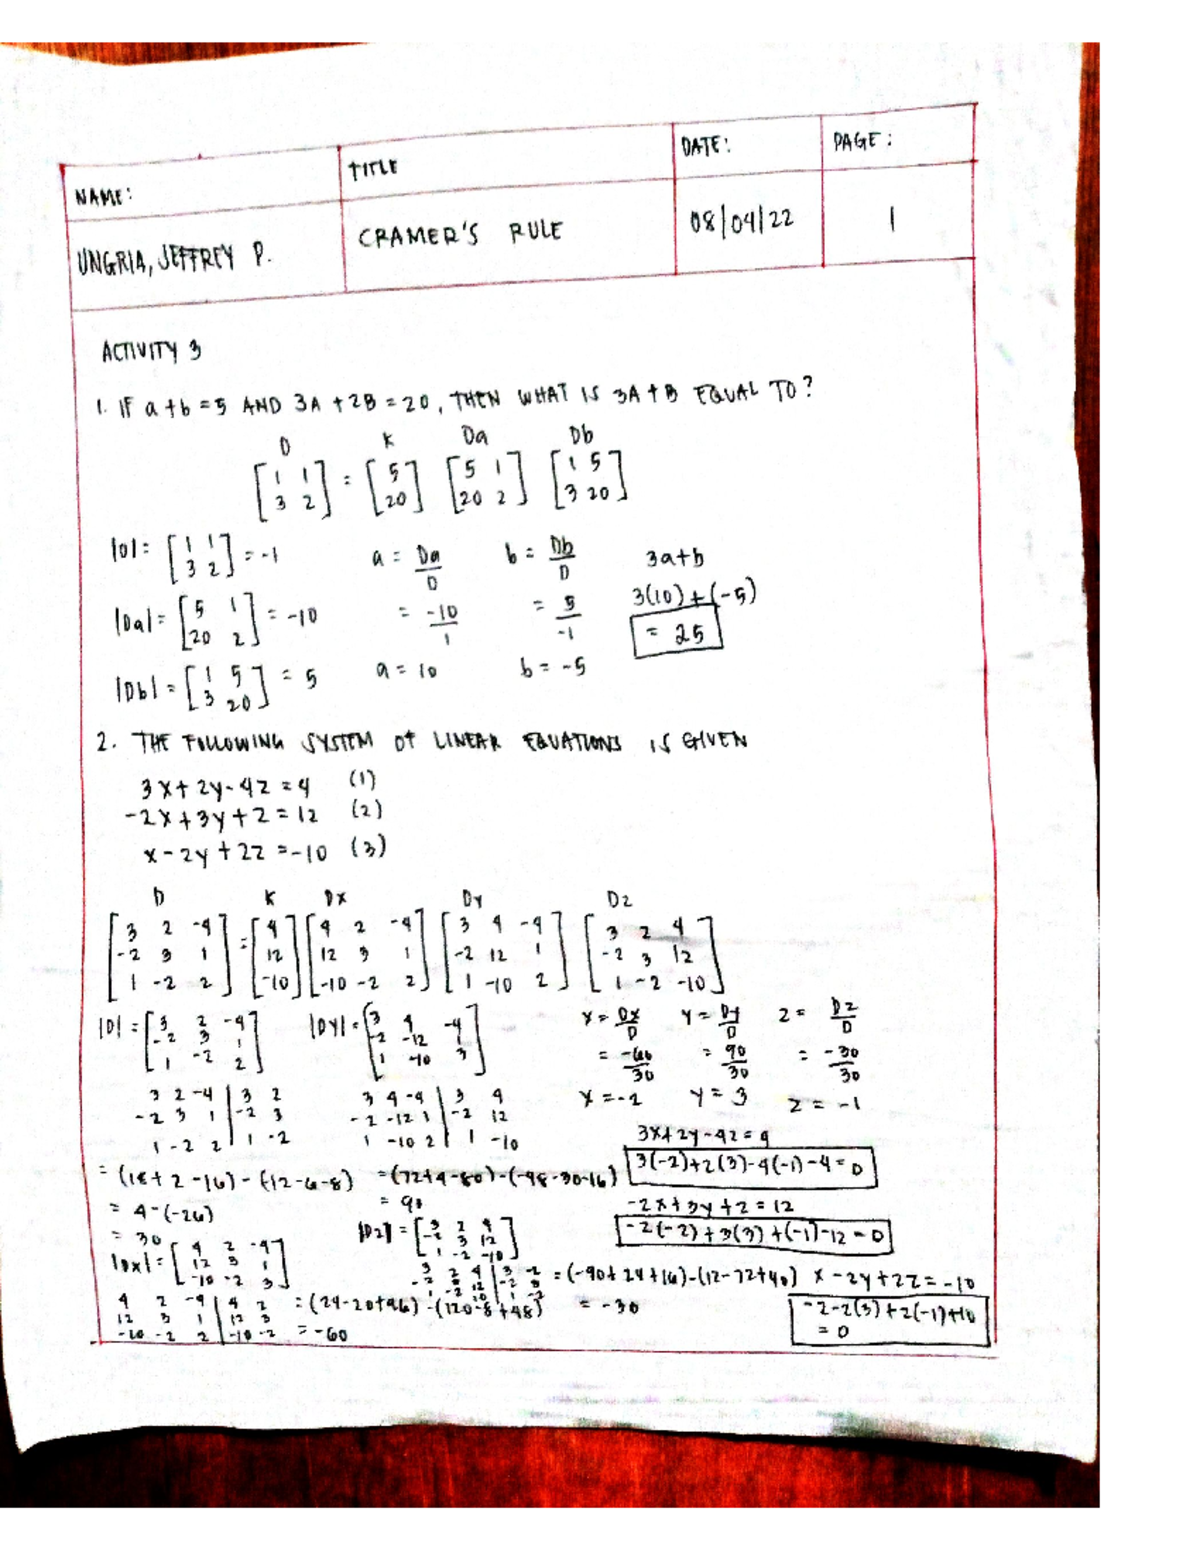 NAME:
TITLE
DATE:
PAGE:
UNGRIA, JEFFREY P.
CRAMER'S RULE
08/04/22
1
ACTIVITY 3
1. IF a+b=5 AND 3A+2B=20, THEN WHAT IS 3A+B EQUAL TO?
D K Da Db
[1 1] = [5] [5 1] [1 5]
[3 2] [20] [20 2] [3 20]
|D| = [1 1] = -1
[3 2]
a = Da/D
b = Db/D
3a+b
|Da| = [5 1] = -10
[20 2]
= -10/1
= 5/-1
3(10)+(-5)
= 25
|Db| = [1 5] = 5
[3 20]
a = 10
b = -5
2. THE FOLLOWING SYSTEM OF LINEAR EQUATIONS IS GIVEN
3x+2y-4z=4 (1)
-2x+3y+z=12 (2)
x-2y+2z=-10 (3)
D K Dx Dy Dz
[3 2 -4] = [4] [4 2 -4] [3 4 -4] [3 2 4]
[-2 3 1] [12] [12 3 1] [-2 12 1] [-2 3 12]
[1 -2 2] [-10] [-10 -2 2] [1 -10 2] [1 -2 -10]
|D| = [3 2 -4]
[-2 3 1]
[1 -2 2]
3 2 -4 | 3 2
-2 3 1 | -2 3
1 -2 2 | 1 -2
= (18+2-16)-(-12-6-8)
= 4-(-26)
= 30
|Dx| = [4 2 -4]
[12 3 1]
[-10 -2 3]
4 2 -4 | 4 2
12 3 1 | 12 3
-10 -2 2 | -10 -2
= (24-20+96)-(120-8+48)
= -60
|Dy| = [3 4 -4]
[-2 -12]
[1 -10 3]
3 4 -4 | 3 4
-2 -12 1 | -2 12
1 -10 2 | 1 -10
= (72+4-80)-(-48-30-16)
= 90
|Dz| = [3 2 4]
[-2 3 12]
[1 -2 -10]
= (-90+24+16)-(12-72+40)
= -30
x = Dx/D
y = Dy/D
z = Dz/D
= -60/30
= 90/30
= -30/30
x = -2
y = 3
z = -1
3x+2y-4z=4
3(-2)+2(3)-4(-1)-4=0
-2x+3y+z=12
-2(-2)+3(3)+(-1)-12=0
x-2y+2z=-10
-2-2(3)+2(-1)+10
= 0